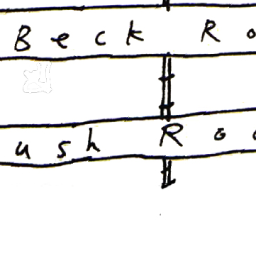 Beck Ro
ush Roo